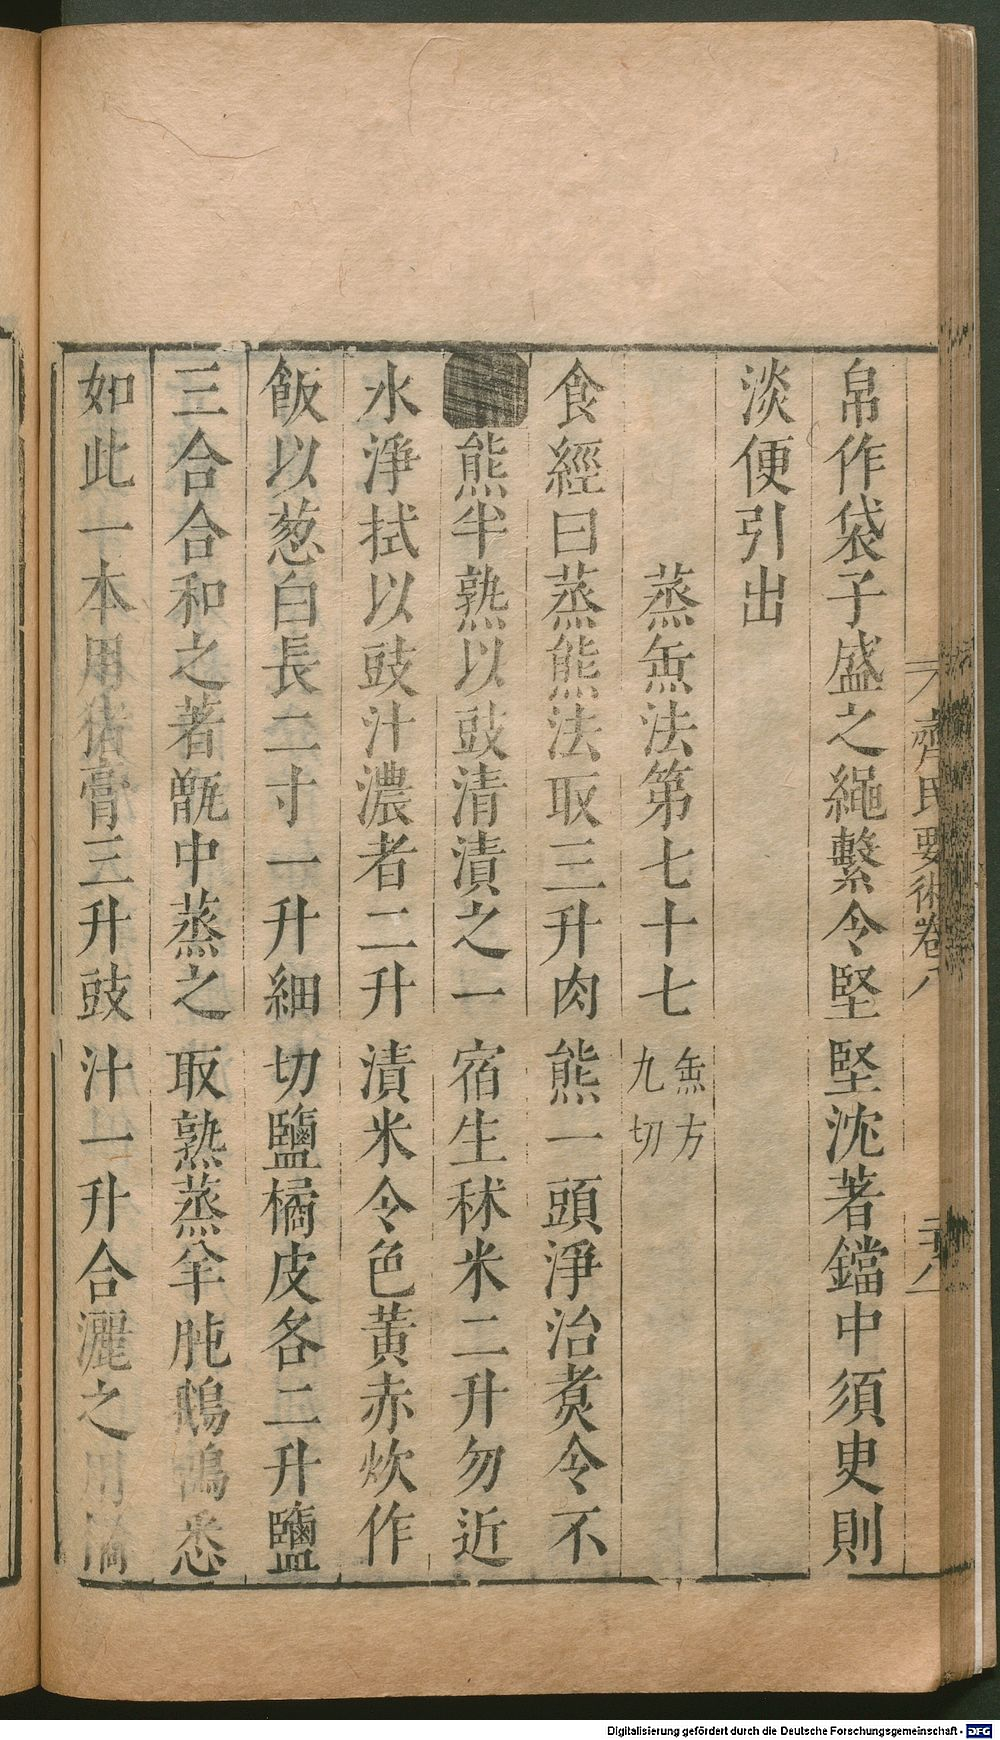 齊民要術卷八
帛作袋子盛之繩繫令堅堅沈著鐺中須臾則
淡便引出
蒸缹法第七十七
缹方
九切
食經曰蒸熊法取三升肉熊一頭淨治煑令不
熊半熟以豉清漬之一宿生秫米二升勿近
水淨拭以豉汁濃者二升漬米令色黃赤炊作
飯以葱白長二寸一升細切鹽橘皮各二升鹽
三合合和之著甑中蒸之取熟蒸羊肫鵝鴨悉
如此一本用猪膏三升豉汁一升合灑之用橘
Digitalisierung gefördert durch die Deutsche Forschungsgemeinschaft - DFG